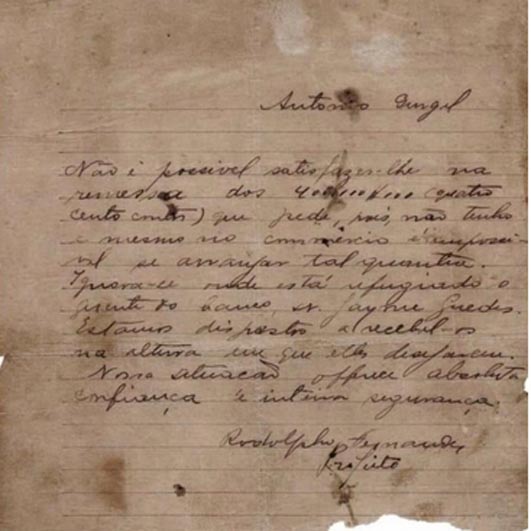 Antonio Gurgel
Não é possivel satisfazer-lhe na
remessa dos 400.000$000 (quatro
centos contos) que pede, pois, não tenho
e mesmo no commércio é impossi
vel se arranjar tal quantia.
Ignora-se onde está refugiado o
gerente do banco, sr. Jayme Guedes.
Estamos dispostos a recebel-os
na altura em que elles desejarem.
Nossa situação offrece absoluta
confiança e inteira segurança.
Rodolpho Fernandes
Prefeito